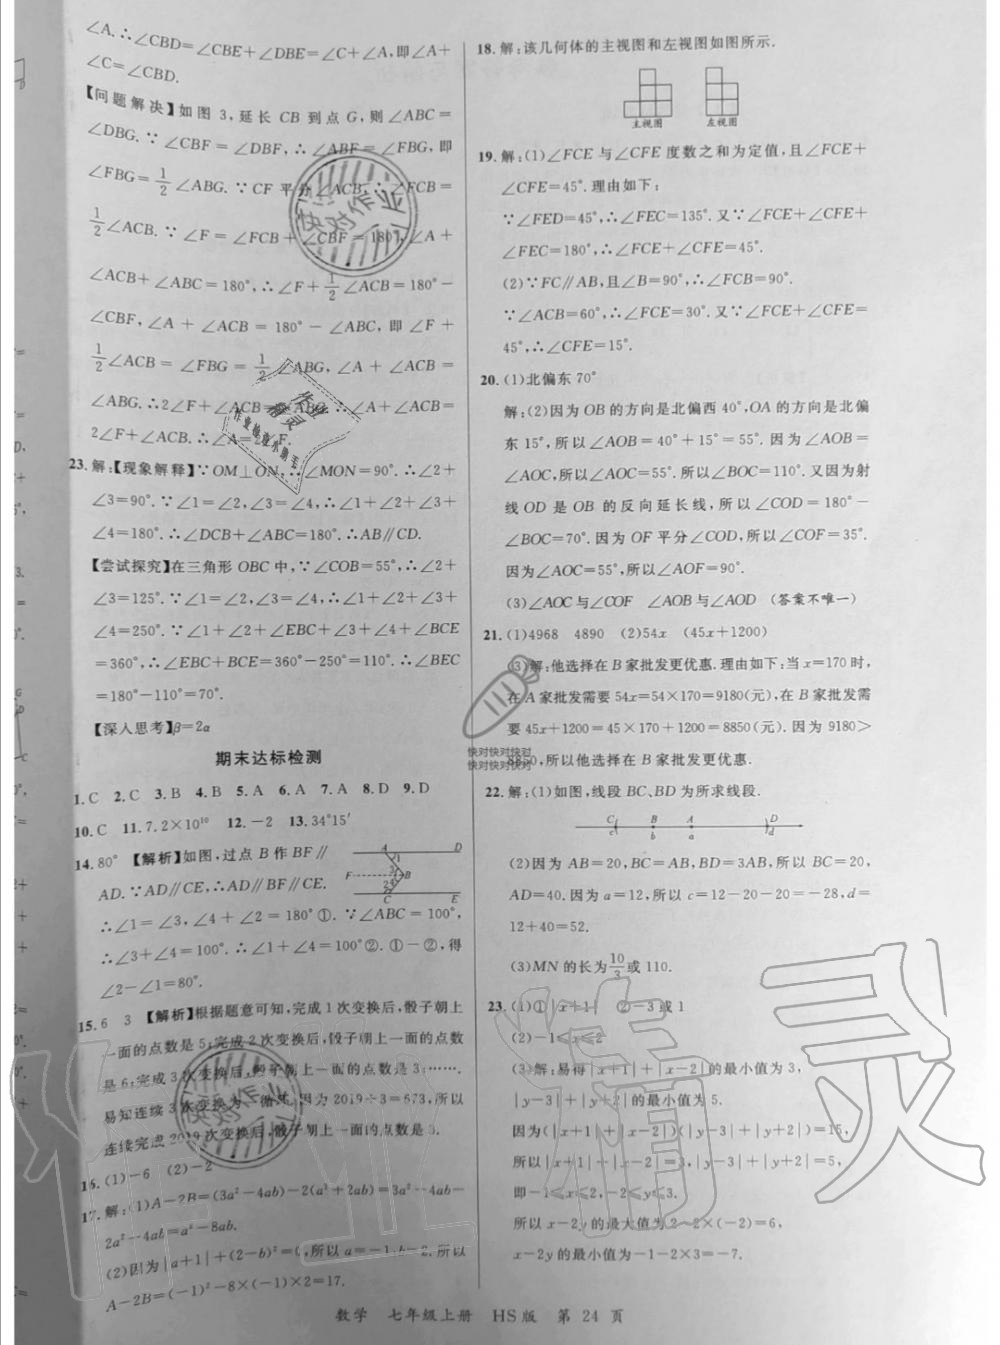 ∠A.∴∠CBD=∠CBE+∠DBE=∠C+∠A,即∠A+
∠C=∠CBD.
【问题解决】如图 3,延长 CB 到点 G,则∠ABC=
∠DBG.∵∠CBF=∠DBF,∴∠ABF=∠FBG,即
∠FBG=1/2∠ABG.∵CF 平分∠ACB,∴∠FCB=
1/2∠ACB.∵∠F=∠FCB+∠CBF=180°,∠A+
∠ACB+∠ABC=180°,∴∠F+1/2∠ACB=180°-
∠CBF,∠A+∠ACB=180°-∠ABC,即∠F+
1/2∠ACB=∠FBG=1/2∠ABG,∠A+∠ACB=
∠ABG.∴2∠F+∠ACB=∠ABG.∴∠A+∠ACB=
2∠F+∠ACB.∴∠A=2∠F.
23.解:【现象解释】∵OM⊥ON,∴∠MON=90°.∴∠2+
∠3=90°.∵∠1=∠2,∠3=∠4,∴∠1+∠2+∠3+
∠4=180°.∴∠DCB+∠ABC=180°.∴AB∥CD.
【尝试探究】在三角形 OBC 中,∵∠COB=55°,∴∠2+
∠3=125°.∵∠1=∠2,∠3=∠4,∴∠1+∠2+∠3+
∠4=250°.∵∠1+∠2+∠EBC+∠3+∠4+∠BCE
=360°,∴∠EBC+BCE=360°-250°=110°.∴∠BEC
=180°-110°=70°.
【深入思考】β=2α
期末达标检测
1.C 2.C 3.B 4.B 5.A 6.A 7.A 8.D 9.D
10.C 11.7.2×10¹⁰ 12.-2 13.34°15′
14.80° 【解析】如图,过点 B 作 BF∥
AD.∵AD∥CE,∴AD∥BF∥CE.
∴∠1=∠3,∠4+∠2=180°①.∵∠ABC=100°,
∴∠3+∠4=100°.∴∠1+∠4=100°②.①-②,得
∠2-∠1=80°.
A D
1
F 3 4 B
2
C E
15.6 3 【解析】根据题意可知,完成 1 次变换后,骰子朝上
一面的点数是 5;完成 2 次变换后,骰子朝上一面的点数
是 6;完成 3 次变换后,骰子朝上一面的点数是 3;…….
易知连续 3 次变换为一循环.因为 2019÷3=673,所以
连续完成 2019 次变换后,骰子朝上一面的点数是 3.
16.(1)-6 (2)-2
17.解:(1)A-2B=(3a²-4ab)-2(a²+2ab)=3a²-4ab-
2a²-4ab=a²-8ab.
(2)因为|a+1|+(2-b)²=0,所以 a=-1,b=2.所以
A-2B=(-1)²-8×(-1)×2=17.
18.解:该几何体的主视图和左视图如图所示.
主视图 左视图
19.解:(1)∠FCE 与∠CFE 度数之和为定值,且∠FCE+
∠CFE=45°.理由如下:
∵∠FED=45°,∴∠FEC=135°.又∵∠FCE+∠CFE+
∠FEC=180°,∴∠FCE+∠CFE=45°.
(2)∵FC∥AB,且∠B=90°,∴∠FCB=90°.
∵∠ACB=60°,∴∠FCE=30°.又∵∠FCE+∠CFE=
45°,∴∠CFE=15°.
20.(1)北偏东 70°
解:(2)因为 OB 的方向是北偏西 40°,OA 的方向是北偏
东 15°,所以∠AOB=40°+15°=55°.因为∠AOB=
∠AOC,所以∠AOC=55°.所以∠BOC=110°.又因为射
线 OD 是 OB 的反向延长线,所以∠COD=180°-
∠BOC=70°.因为 OF 平分∠COD,所以∠COF=35°.
因为∠AOC=55°,所以∠AOF=90°.
(3)∠AOC 与∠COF ∠AOB 与∠AOD (答案不唯一)
21.(1)4968 4890 (2)54x (45x+1200)
(3)解:他选择在 B 家批发更优惠.理由如下:当 x=170 时,
在 A 家批发需要 54x=54×170=9180(元),在 B 家批发需
要 45x+1200=45×170+1200=8850(元).因为 9180>
8850,所以他选择在 B 家批发更优惠.
快对快对快对
快对快对快对
22.解:(1)如图,线段 BC、BD 为所求线段.
C B A D
c b a d
(2)因为 AB=20,BC=AB,BD=3AB,所以 BC=20,
AD=40.因为 a=12,所以 c=12-20-20=-28,d=
12+40=52.
(3)MN 的长为10/3或 110.
23.(1)①|x+1| ②-3 或 1
(2)-1≤x≤2
(3)解:易得|x+1|+|x-2|的最小值为 3,
|y-3|+|y+2|的最小值为 5.
因为(|x+1|+|x-2|)(|y-3|+|y+2|)=15,
所以|x+1|+|x-2|=3,|y-3|+|y+2|=5,
即-1≤x≤2,-2≤y≤3.
所以 x-2y 的最大值为 2-2×(-2)=6,
x-2y 的最小值为-1-2×3=-7.
数学 七年级上册 HS版 第 24 页
快对作业
作业精灵
作业检查小助手
快对作业
作业精灵